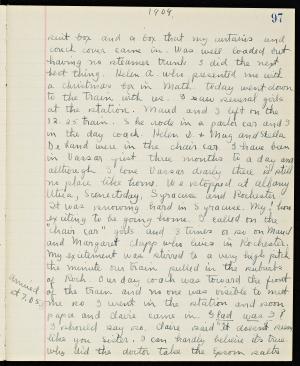 1909.
97
suit box and a box that my curtains and
couch cover came in. Was well loaded but
having no steamer trunk I did the next
best thing. Helen A. who presented me with
a christmas box in Math. today went down
to the train with us. I saw several girls
at the station. Maud and I left on the
12.25 train. She rode in a parlor car and I
in the day coach. Helen D. + Mug and Stella
De were in the chair car. I have been
in Vassar just three months to a day and
although I love Vassar dearly there is still
no place like home. We stopped at Albany
Utica, Schenectady, Syracuse and Rochester.
It was snowing hard in Syracuse. My! how
exciting to be going home. I called on the
"chair car" girls and 3 times or so on Maud
and Margaret Clapp who lives in Rochester.
My excitement was stirred to a very high pitch
the minute our train pulled in the suburbs
of Roch. Our day coach was toward the front
of the train and no one was visible to meet
Arrived
at 7.05
me so I went in the station and soon
Papa and Claire came in. Glad was I?
I should say so. Claire said "It doesn't seem
like you sister. I can hardly believe its true
why did the doctor take the Epsom salts